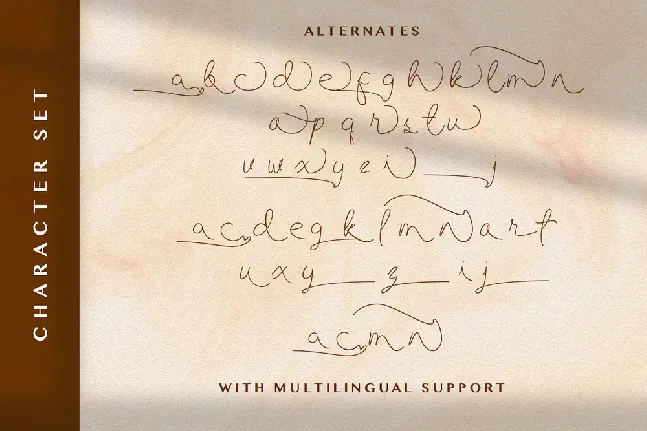 CHARACTER SET
ALTERNATES
a b c d e f g h k l m n
o p q r s t u
v w x y e i j
a c d e g k l m n a r t
u x y z i j
a c m n
WITH MULTILINGUAL SUPPORT